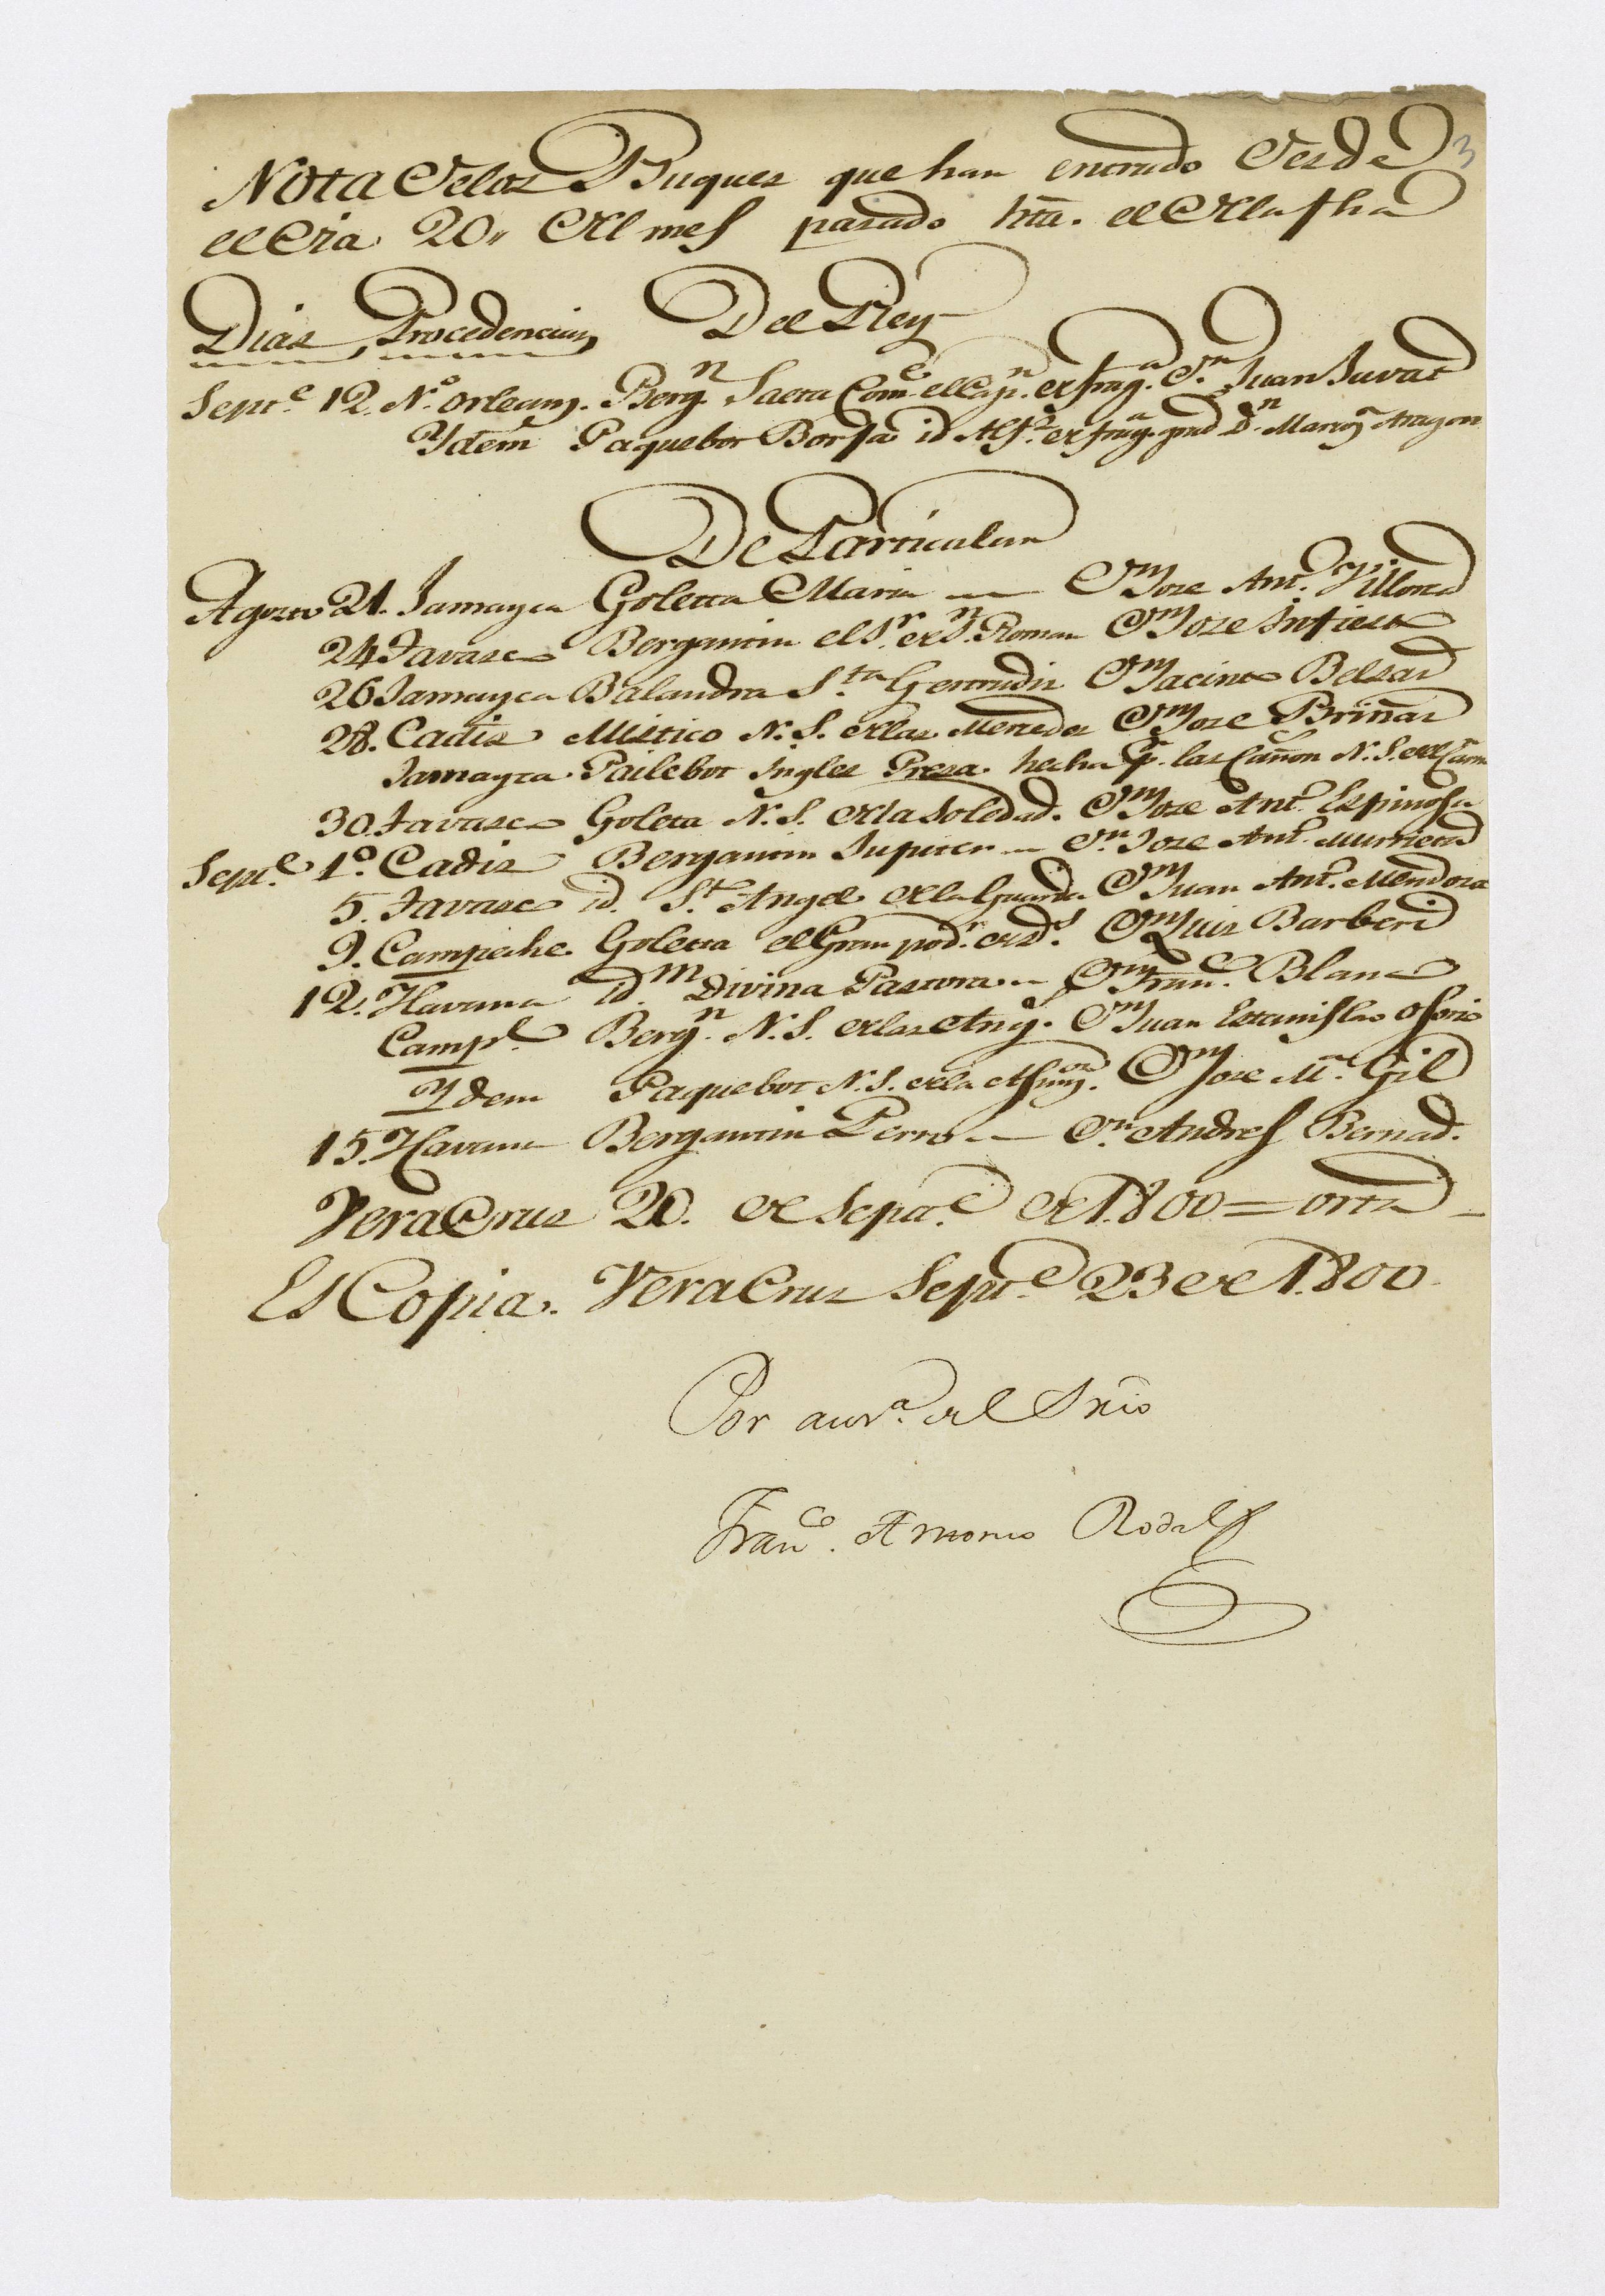 Nota de los Buques que han entrado desde 3
el dia 20,, del mes pasado hta. el de la fha
Dias Procedencias Del Rey
Septe. 12. No. Orleans. Bergn. Saeta Come. el Capn. de frag.a Dn. Juan Juvat
Ydem Paquebot Borja id Alfz. de frag.a grad Dn. Marno. Aragon
De Particulares
Agosto 21. Jamayca Goleta Maria — Dn Jose Anto. Villona
24 Tavasco Bergantin el Sr. de Sn. Roman Dn Jose Intieta
26 Jamayca Balandra Sta. Gertrudis Dn Jacinto Belsar
28. Cadis Mistico N. S. de las Mercedes Dn Jose Briñas
Jamayca Pailebot Ingles Presa hecha pr. las Cañon N. S. del Carm
30. Tavasco Goleta N. S. de la Soledad. Dn Jose Anto. Espinosa
Septe. 1o. Cadis Bergantin Jupiter — Dn. Jose Anto. Murrieta
5. Tavasco id. Sto. Angel de la Guarda Dn Juan Anto. Mendoza
9. Campeche Goleta el Gran podr. de Ds. Dn Luis Barberi
12. Havana id. m Divina Pastora — Dn Franco. Blanco
Campe. Bergn. N. S. de las Angs. Dn Juan Estanislao Osorio
Ydem Paquebot N. S. de la Asunon. Dn Jose Ma. Gil
15. Havana Bergantin Perro — Dn. Andres Bernad.
VeraCrus 20. de Septe. de 1.800 = orta
Es Copia. VeraCrus Septe. 23 de 1.800.
Por auxa. del Srio
Franco. Antonio Rodal